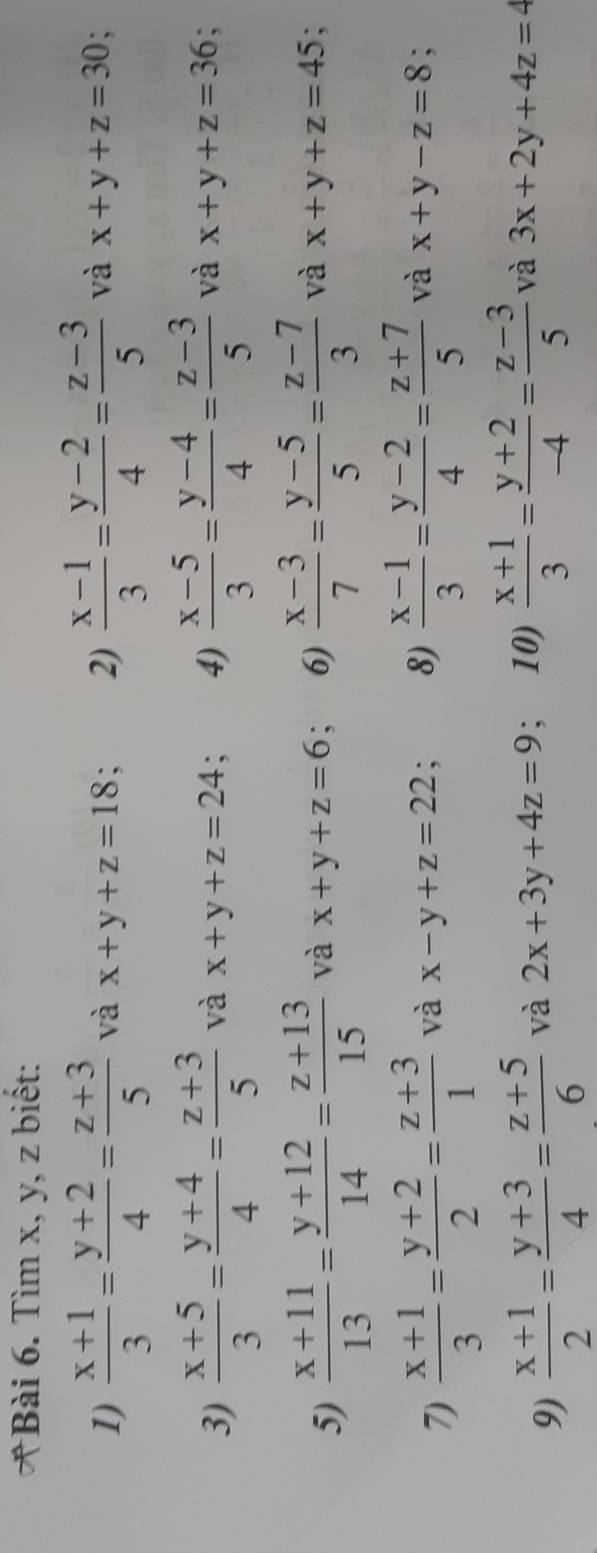 Bài 6. Tìm x, y, z biết:
1) (x+1)/3 = (y+2)/4 = (z+3)/5 và x+y+z=18; 2) (x−1)/3 = (y−2)/4 = (z−3)/5 và x+y+z=30;
3) (x+5)/3 = (y+4)/4 = (z+3)/5 và x+y+z=24; 4) (x−5)/3 = (y−4)/4 = (z−3)/5 và x+y+z=36;
5) (x+11)/13 = (y+12)/14 = (z+13)/15 và x+y+z=6; 6) (x−3)/7 = (y−5)/5 = (z−7)/3 và x+y+z=45;
7) (x+1)/3 = (y+2)/2 = (z+3)/1 và x−y+z=22; 8) (x−1)/3 = (y−2)/4 = (z+7)/5 và x+y−z=8;
9) (x+1)/2 = (y+3)/4 = (z+5)/6 và 2x+3y+4z=9; 10) (x+1)/3 = (y+2)/−4 = (z−3)/5 và 3x+2y+4z=4